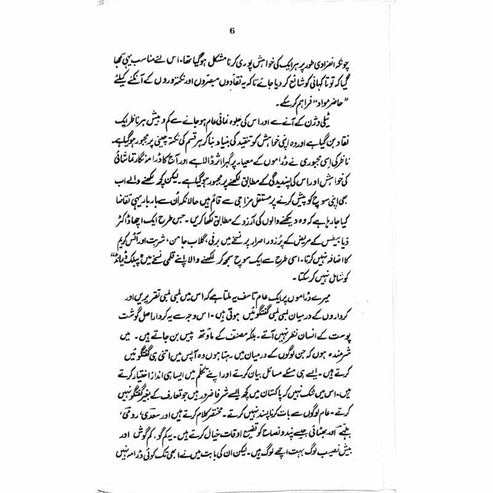 6
چونکہ انفرادی طور پر ہر ایک کی خواہش پوری کرنا مشکل ہو گیا تھا۔ اس لئے مناسب یہی سمجھا
گیا کہ توتا کہانی کو شائع کر دیا جائے تاکہ یہ نقادوں مبصروں اور نکتہ وروں کے آنکنے کیلئے
"حاضر مواد" فراہم کر سکے۔
ٹیلی وژن کے آنے سے اور اس کی جلوہ نمائی عام ہو جانے سے کم و بیش ہر ناظر ایک
نقاد بن گیا ہے اور وہ اپنی خواہش کو تنقید کی بنیاد بنا کر ہر قسم کی نکتہ چینی پر مجبور ہو گیا ہے۔
ناظر کی اسی مجبوری نے ڈراموں کے معیار پر گہرا اثر ڈالا ہے اور آج کا ڈرامہ نگار تماشائی
کی خواہش اور اس کی پسندیدگی کے مطابق لکھنے پر مجبور ہو گیا ہے۔ لیکن کچھ لکھنے والے اب
بھی اپنی سوچ کو پیش کرنے پر مستقل مزاجی سے قائم ہیں حالانکہ اُن سے بار بار یہی تقاضا
کیا جا رہا ہے کہ وہ دیکھنے والوں کی آرزو کے مطابق لکھا کریں۔ جس طرح ایک اچھا ڈاکٹر
ذیابیطس کے مریض کے پُر زور اصرار پر نسخے میں برفی، گلاب جامن، شربت اور آئس کریم
کا اضافہ نہیں کرتا۔ اسی طرح سے ایک سوچ سمجھ کر لکھنے والا اپنے قلمی نسخے میں "پبلک ڈیمانڈ"
کو شامل نہیں کر سکتا۔
میرے ڈراموں پر ایک عام تاسف یہ ملتا ہے کہ اس میں لمبی لمبی تقریریں اور
کرداروں کے درمیان لمبی لمبی گفتگوئیں ہوتی ہیں۔ اس وجہ سے یہ کردار اصل گوشت
پوست کے انسان نظر نہیں آتے۔ بلکہ مصنف کے ماؤتھ پیس بن جاتے ہیں۔ میں
شرمندہ ہوں کہ جن لوگوں کے درمیان میں رہتا ہوں وہ آپس میں اتنی ہی گفتگوئیں
کرتے ہیں۔ ایسے ہی مسئلے مسائل بیان کرتے اور اپنے تکلم میں ایسا ہی انداز اختیار کرتے
ہیں۔ اس میں شک نہیں کہ پاکستان میں کچھ ایسے شرفا ضرور ہیں جو تعارف کے بغیر گفتگو نہیں
کرتے۔ عام لوگوں سے بات کرنا پسند نہیں کرتے۔ مختصر کلام کرتے ہیں اور سعدی، رومی،
بلھے اور بھٹائی جیسے پند و نصائح کو تضیع اوقات خیال کرتے ہیں۔ یہ کم گو، کم گوش اور
بیش نصیب لوگ بہت اچھے لوگ ہیں۔ لیکن ان کی بابت میں نے ابھی تک کوئی ڈرامہ نہیں